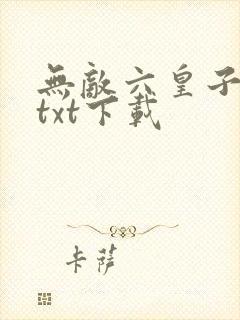 無敵六皇子
txt下載
卡薩